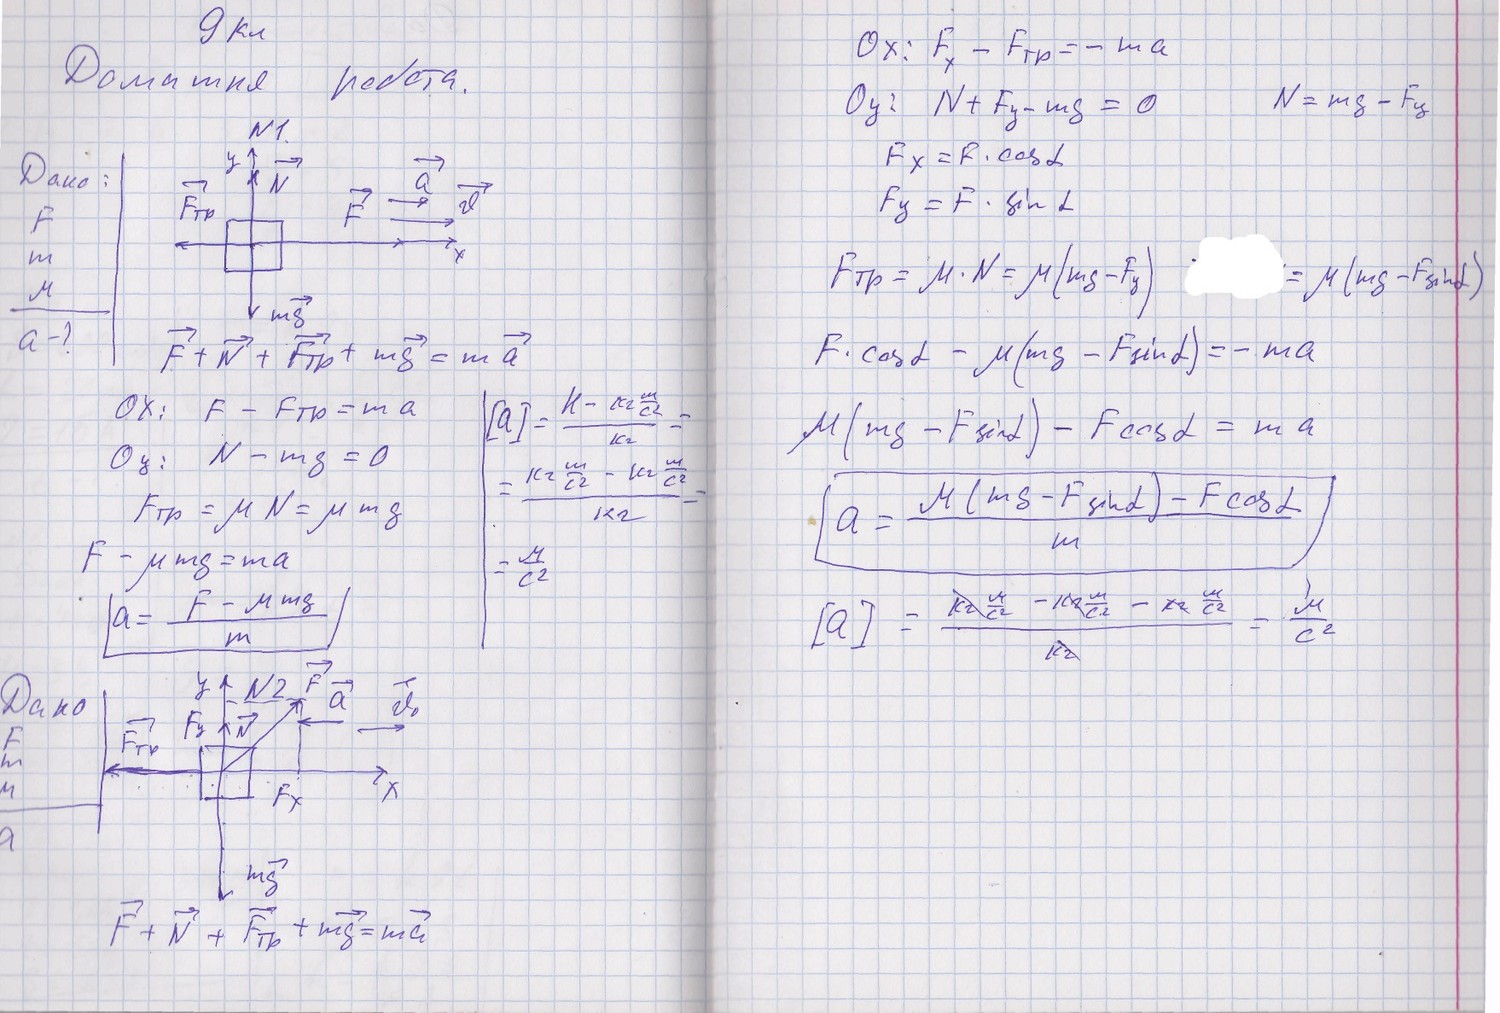 9 кл
Домашня работа.
N 1.
Дано:
F
m
μ
a - ?
y
N
Fтр
F
a
v
x
mg
F + N + Fтр + mg = m a
OX: F - Fтр = ma
Oy: N - mg = 0
Fтр = μ N = μ mg
F - μ mg = ma
a = (F - μ mg) / m
[a] = (Н - кг м/с²) / кг =
= (кг м/с² - кг м/с²) / кг =
= м/с²
N 2
Дано
F
m
μ
a
y
Fy
N
F
a
v₀
Fтр
Fx
x
mg
F + N + Fтр + mg = ma
Ox: Fx - Fтр = - ma
Oy: N + Fy - mg = 0 N = mg - Fy
Fx = F · cos α
Fy = F · sin α
Fтр = μ · N = μ (mg - Fy) = μ (mg - F sin α)
F · cos α - μ (mg - F sin α) = - ma
μ (mg - F sin α) - F cos α = ma
a = (μ (mg - F sin α) - F cos α) / m
[a] = (кг м/с² - кг м/с² - кг м/с²) / кг = м/с²